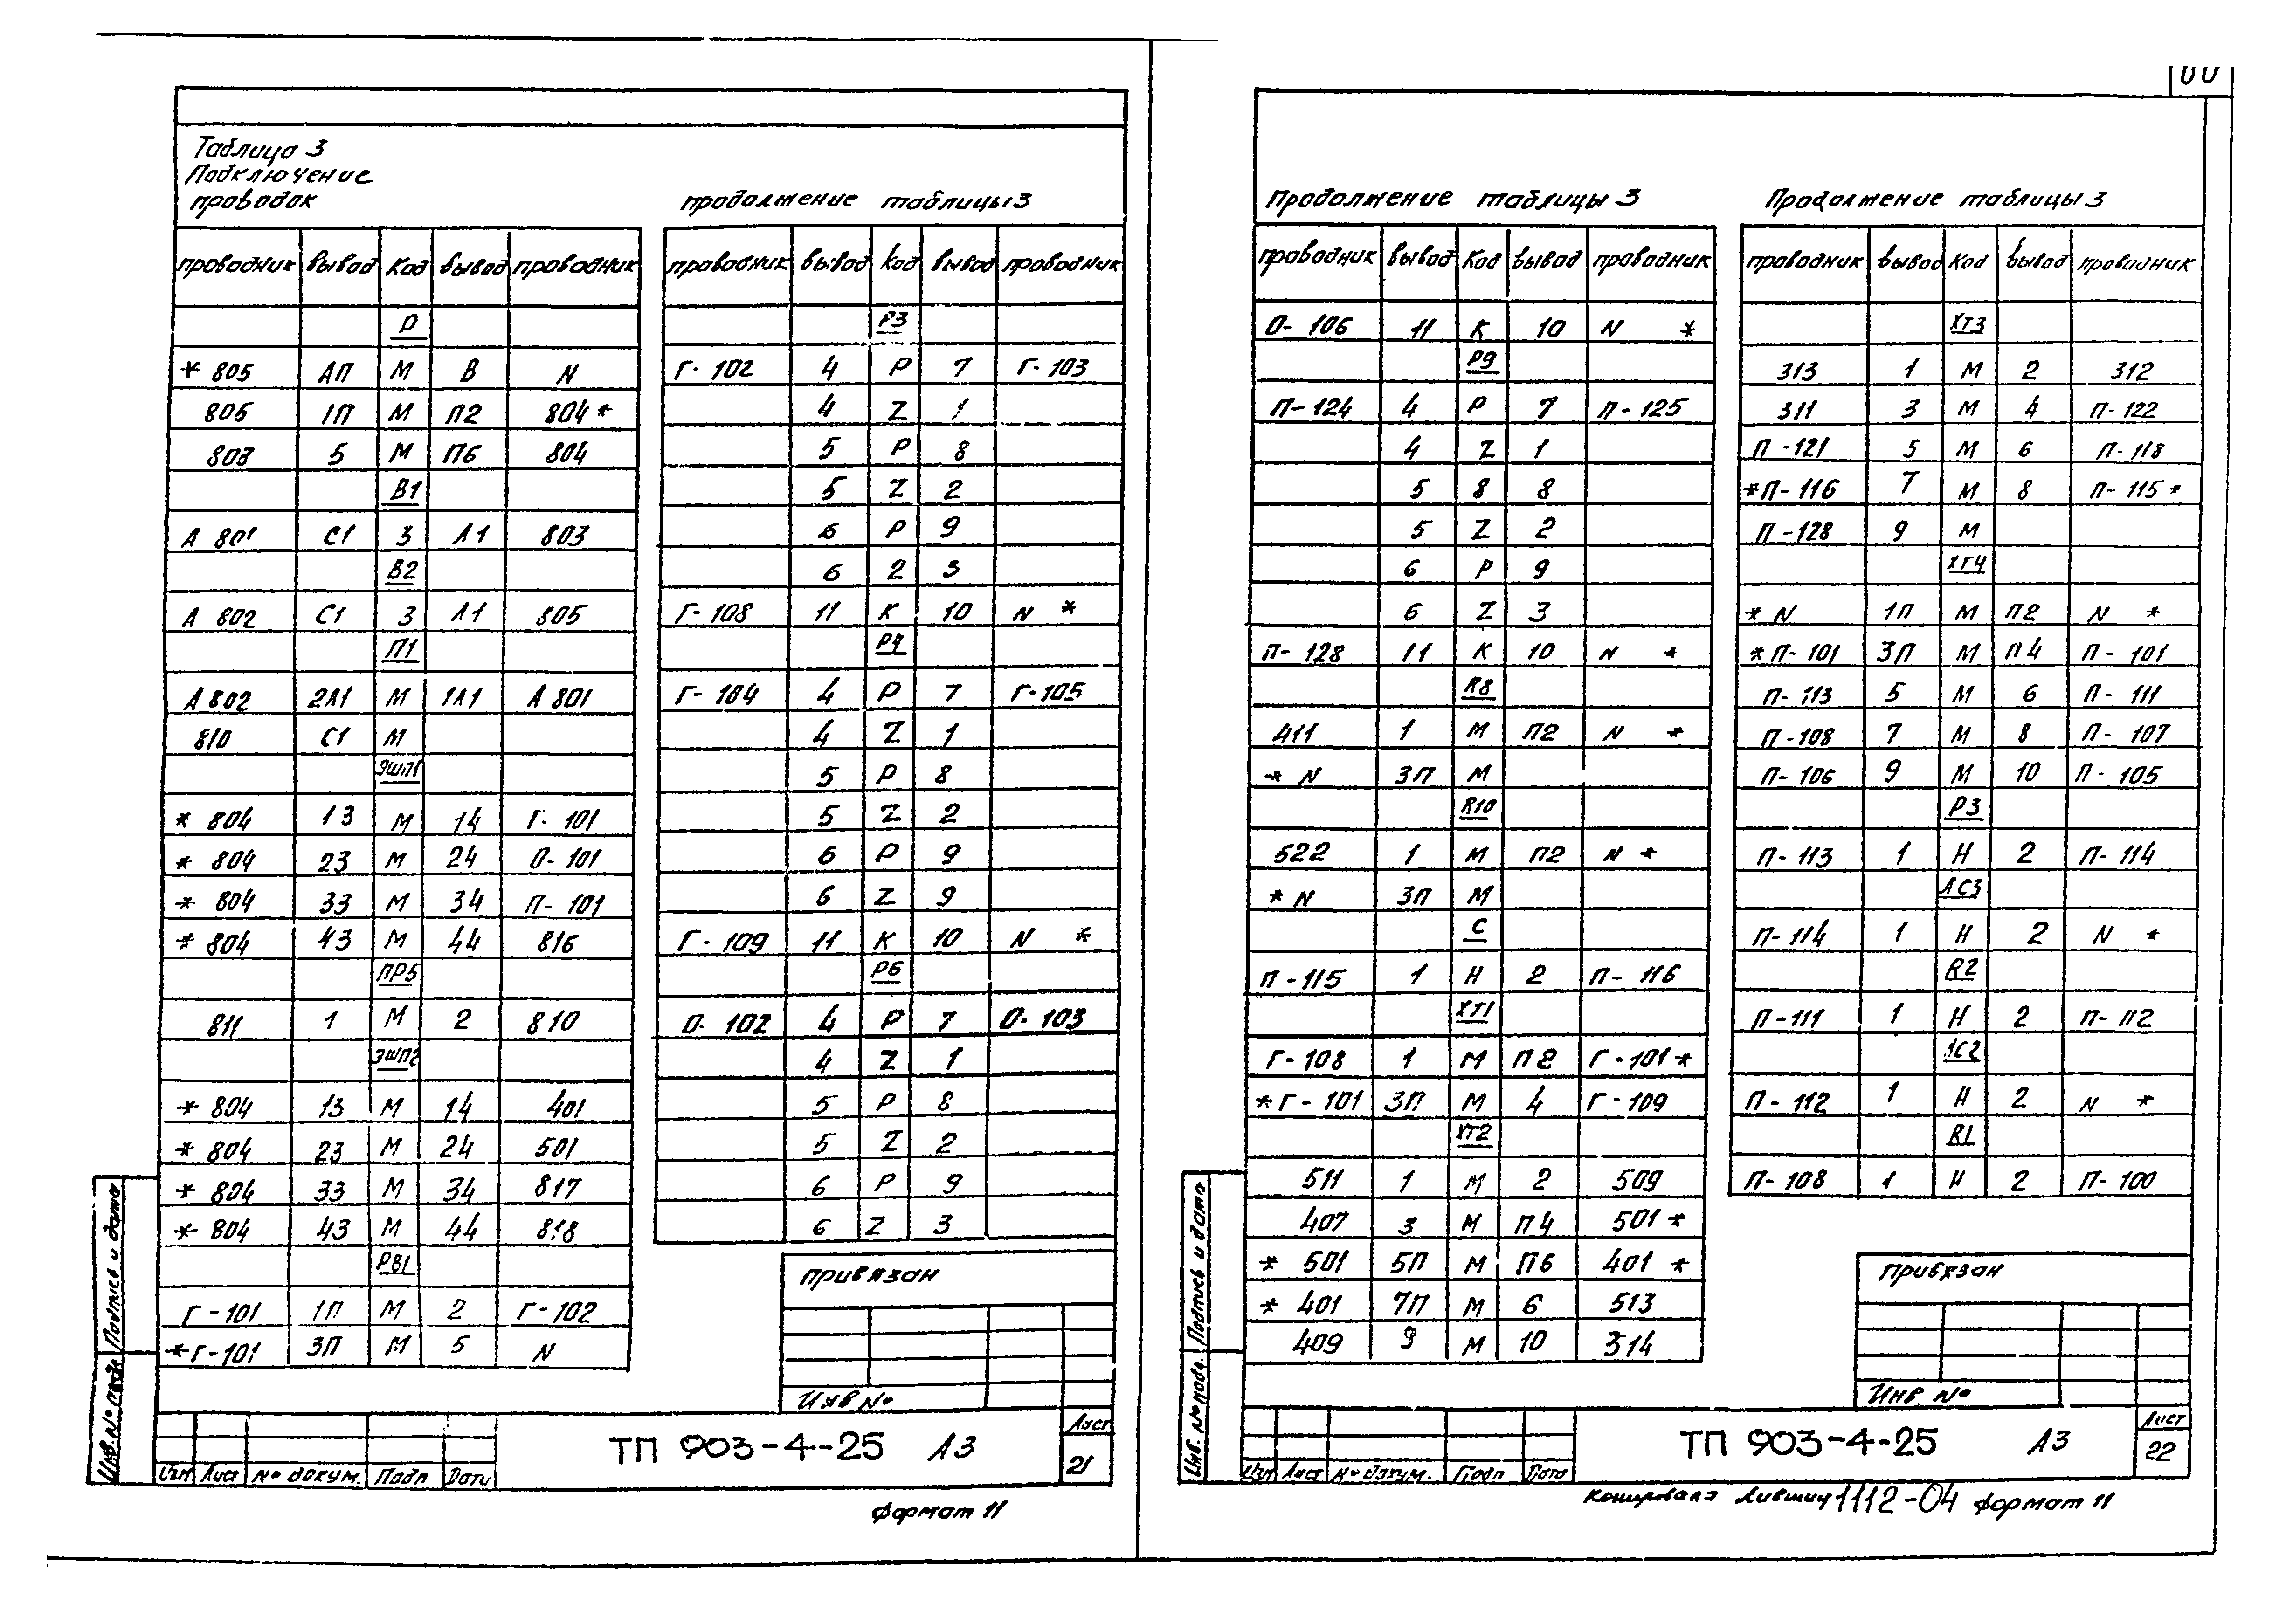 Таблица 3
Подключение
проводок
проводник вывод Код вывод проводник
Р
* 805 АП М В N
805 1П М П2 804 *
803 5 М П6 804
В1
А 801 С1 3 Л1 803
В2
А 802 С1 3 Л1 805
П1
А 802 2Л1 М 1Л1 А 801
810 С1 М
ЭШП1
* 804 13 М 14 Г- 101
* 804 23 М 24 О- 101
* 804 33 М 34 П- 101
* 804 43 М 44 816
ПР5
811 1 М 2 810
ЭШП2
* 804 13 М 14 401
* 804 23 М 24 501
* 804 33 М 34 817
* 804 43 М 44 818
РВ1
Г-101 1П М 2 Г-102
* Г-101 3П М 5 N
продолжение таблицы 3
проводник вывод код вывод проводник
Р3
Г- 102 4 Р 7 Г- 103
4 Z 1
5 Р 8
5 Z 2
6 Р 9
6 2 3
Г- 108 11 К 10 N *
Р4
Г- 104 4 Р 7 Г-105
4 Z 1
5 Р 8
5 Z 2
6 Р 9
6 Z 9
Г- 109 11 К 10 N *
Р6
О- 102 4 Р 7 О- 103
4 Z 1
5 Р 8
5 Z 2
6 Р 9
6 Z 3
привязан
Инв №
Изм Лист № докум. Подп Дата
ТП 903-4-25 А3
Лист
21
Инв. № подл Подпись и дата
Формат 11
Продолжение таблицы 3
проводник вывод Код вывод проводник
О- 106 11 К 10 N *
Р9
П-124 4 Р 7 П-125
4 Z 1
5 8 8
5 Z 2
6 Р 9
6 Z 3
П- 128 11 К 10 N *
R8
411 1 М П2 N *
* N 3П М
R10
522 1 М П2 N *
* N 3П М
С
П-115 1 Н 2 П- 116
ХТ1
Г-108 1 М П2 Г-101 *
* Г-101 3П М 4 Г-109
ХТ2
511 1 М 2 509
407 3 М П4 501 *
* 501 5П М П6 401 *
* 401 7П М 6 513
409 9 М 10 314
Продолжение таблицы 3
проводник вывод Код вывод проводник
ХТ3
313 1 М 2 312
311 3 М 4 П-122
П-121 5 М 6 П-118
* П-116 7 М 8 П-115 *
П-128 9 М
ХТ4
* N 1П М П2 N *
* П-101 3П М П4 П-101
П-113 5 М 6 П-111
П-108 7 М 8 П-107
П-106 9 М 10 П-105
Р3
П-113 1 Н 2 П-114
ЛС3
П-114 1 Н 2 N *
R2
П-111 1 Н 2 П-112
ЛС2
П-112 1 Н 2 N *
R1
П-108 1 Н 2 П-100
привязан
Инв. №
Изм Лист № докум. Подп Дата
ТП 903-4-25 А3
Лист
22
Инв. № подл. Подпись и дата
Копировала Лившиц 1112-04 формат 11